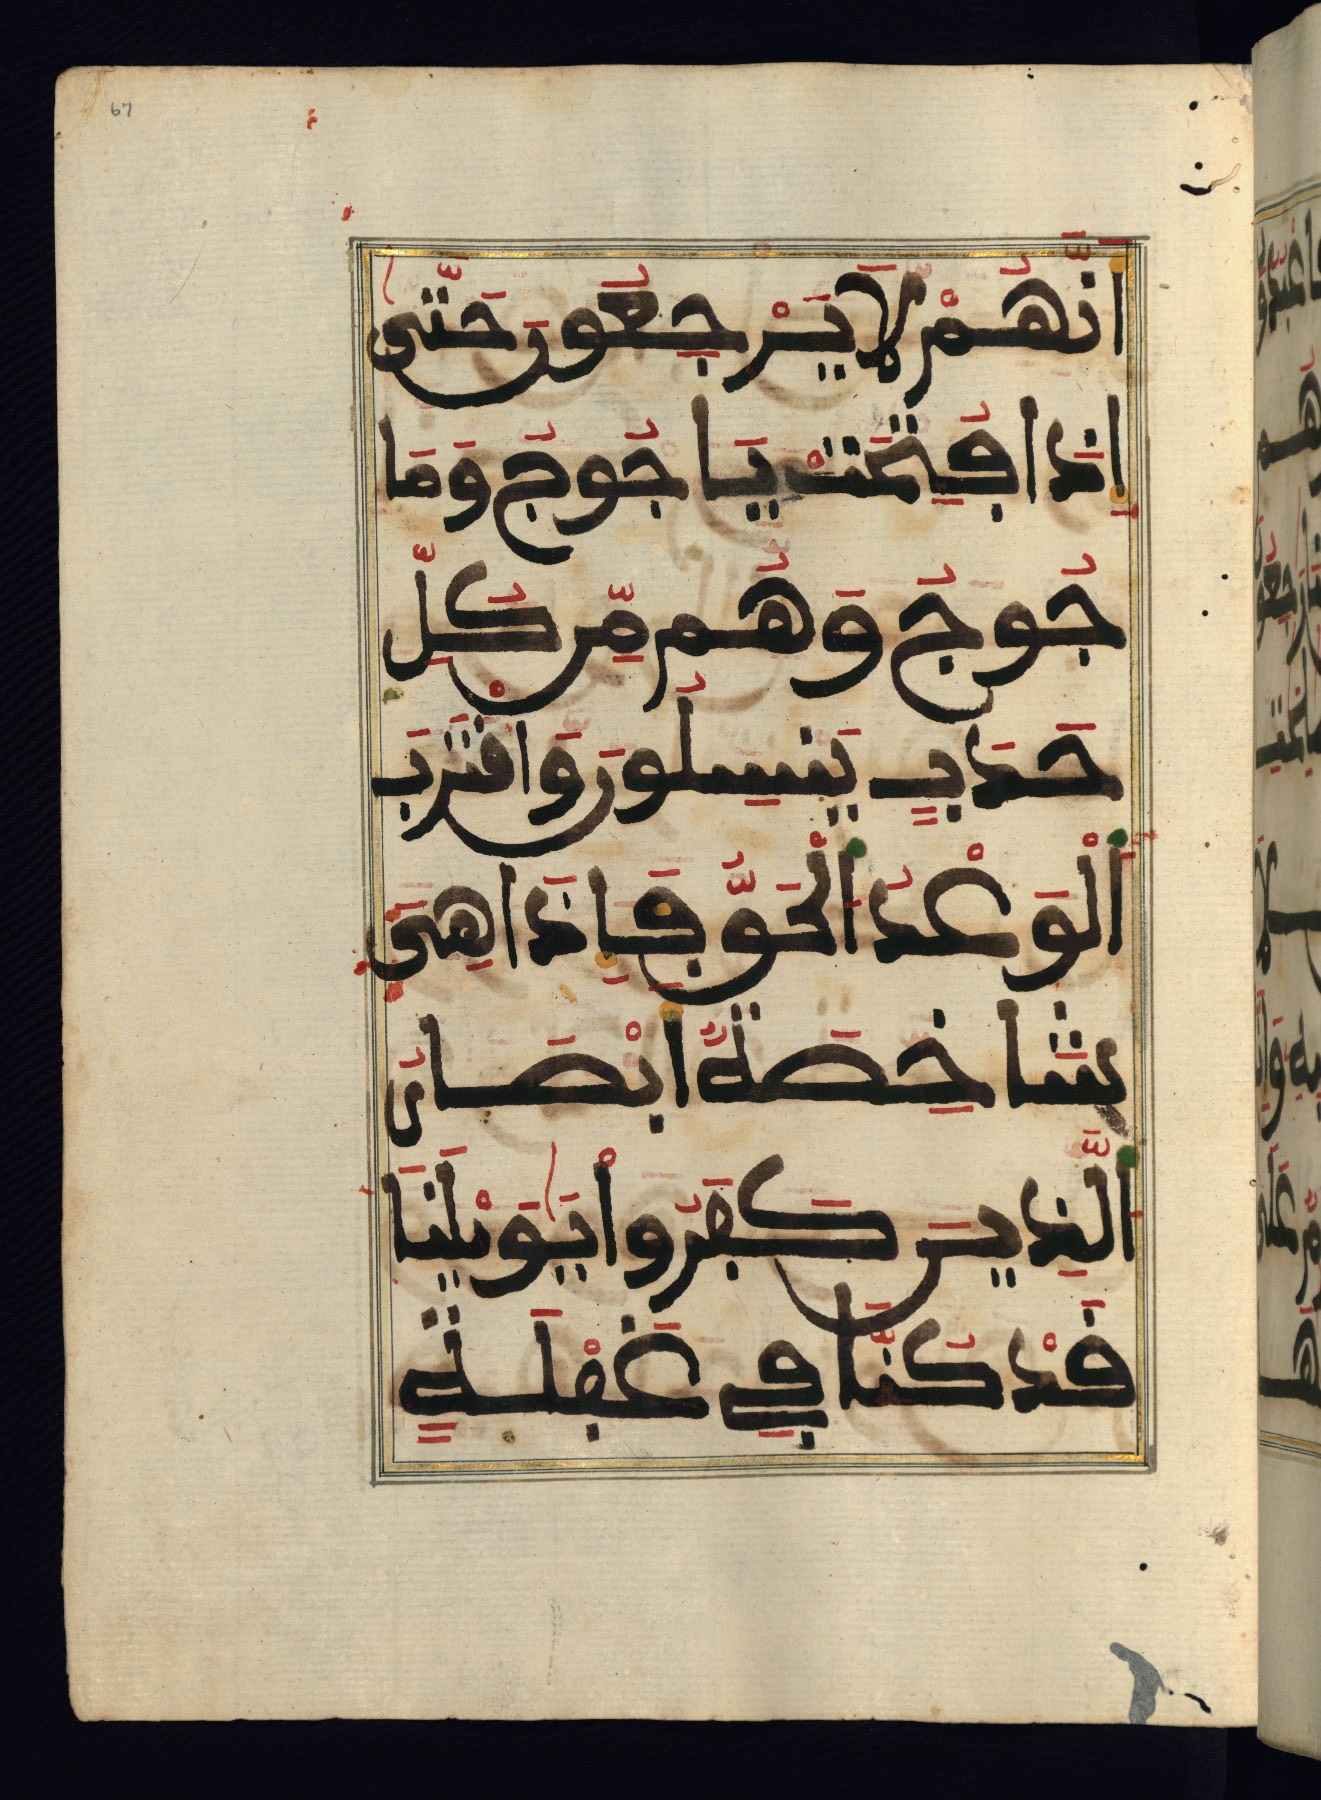 67
أَنَّهُمْ لَا يَرْجِعُونَ حَتَّىٰ
إِذَا فُتِحَتْ يَاجُوجُ وَمَا
جُوجُ وَهُم مِّن كُلِّ
حَدَبٍ يَنسِلُونَ وَاقْتَرَبَ
اَلْوَعْدُ اَلْحَقُّ فَإِذَا هِيَ
شَاخِصَةٌ أَبْصَارُ
اَلَّذِينَ كَفَرُواْ يَٰوَيْلَنَا
قَدْ كُنَّا فِي غَفْلَةٍ